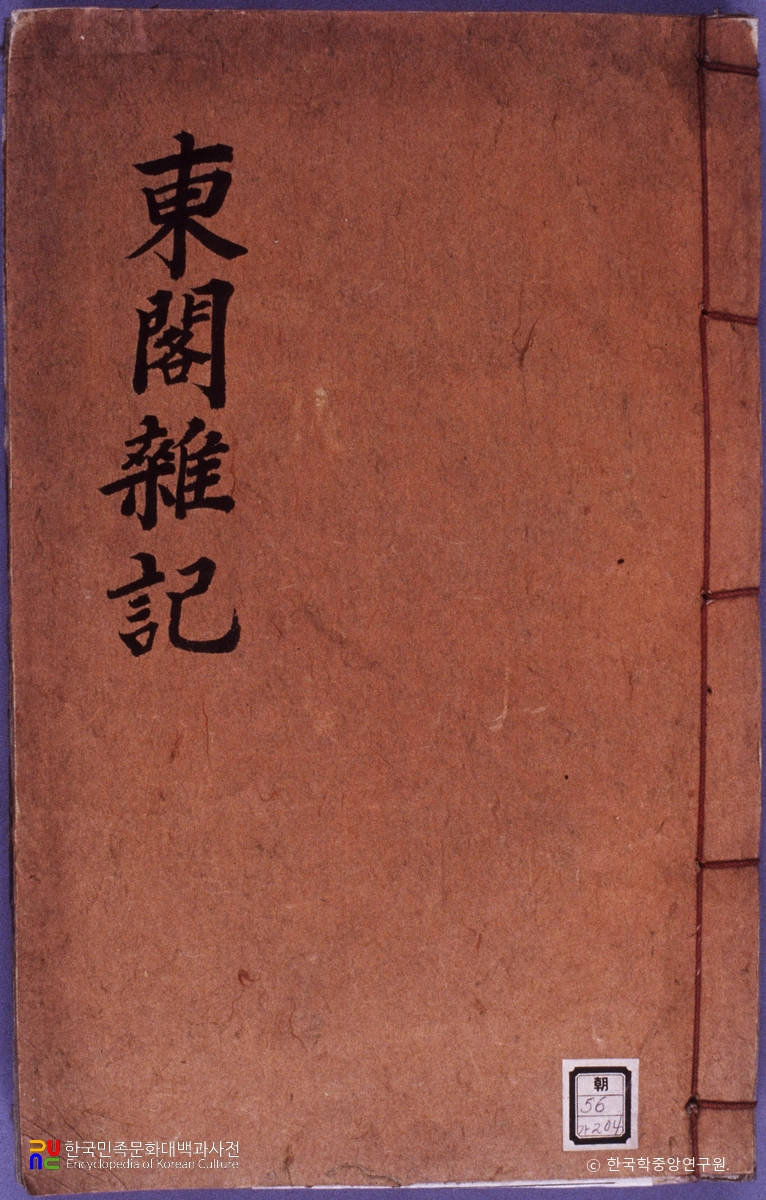 東閣雜記
朝
56
가204
한국민족문화대백과사전
Encyclopedia of Korean Culture
© 한국학중앙연구원.